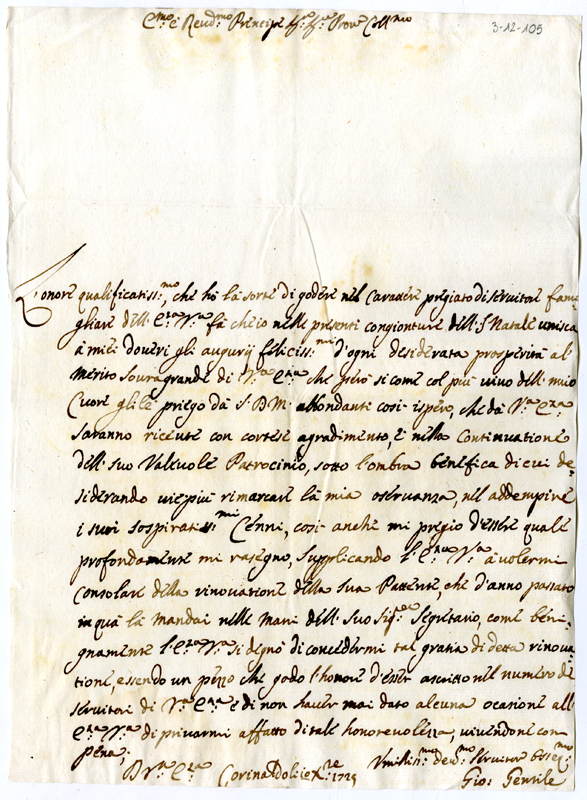 E.mo e Reud.mo Principe Sig.r Sig.r Prone Coll.mo
3-12-105
L'onore qualificatiss.mo, che hò la sorte di godere nel Carattere pregiato di seruitore fami
gliare dell' E.za V.ra fà che io nelle presenti congionture dell S. Natale umisca
à miei doueri gli augurij feliciss.mi d'ogni desiderata prosperità al
merito souragrande di V.ra E.za che però si come col più uiuo dell mio
Cuore gli le priego dà S. D. M. abbondanti così spero, che dà V.ra E.za
saranno riceute con cortese agradimento, e nella Continuatione
dell suo Valeuole Patrocinio, sotto l'ombra benefica di cui de=
siderando uie più rimarcare la mia oseruanza, nell addempire
i suoi sospiratiss.mi Cenni, così anche mi pregio d'essere quale
profondamente mi rasegno, supplicando l' E.za V.ra à uolermi
consolare della rinouatione della sua Pattente, che d'anno passato
in quà la mandai nelle mani dell suo Sig.re Segretario, come beni=
gnamente l' E.za V.ra si degnò di concedermi tal gratia di detta rinoua
tione, essendo un pezzo che godo l'honore d'esser ascritto nel numero de
seruitori di V.ra E.za e di non hauer mai dato alcuna ocasione all
E.za V.ra di priuarmi affatto di tale honoreuolezza, uiuendone con
pena;
D V.ra E.za Corinaldo li 10bre 1725
Vmiliss.mo deu.mo Seruitor Osseq.mo
Gio: Gentile